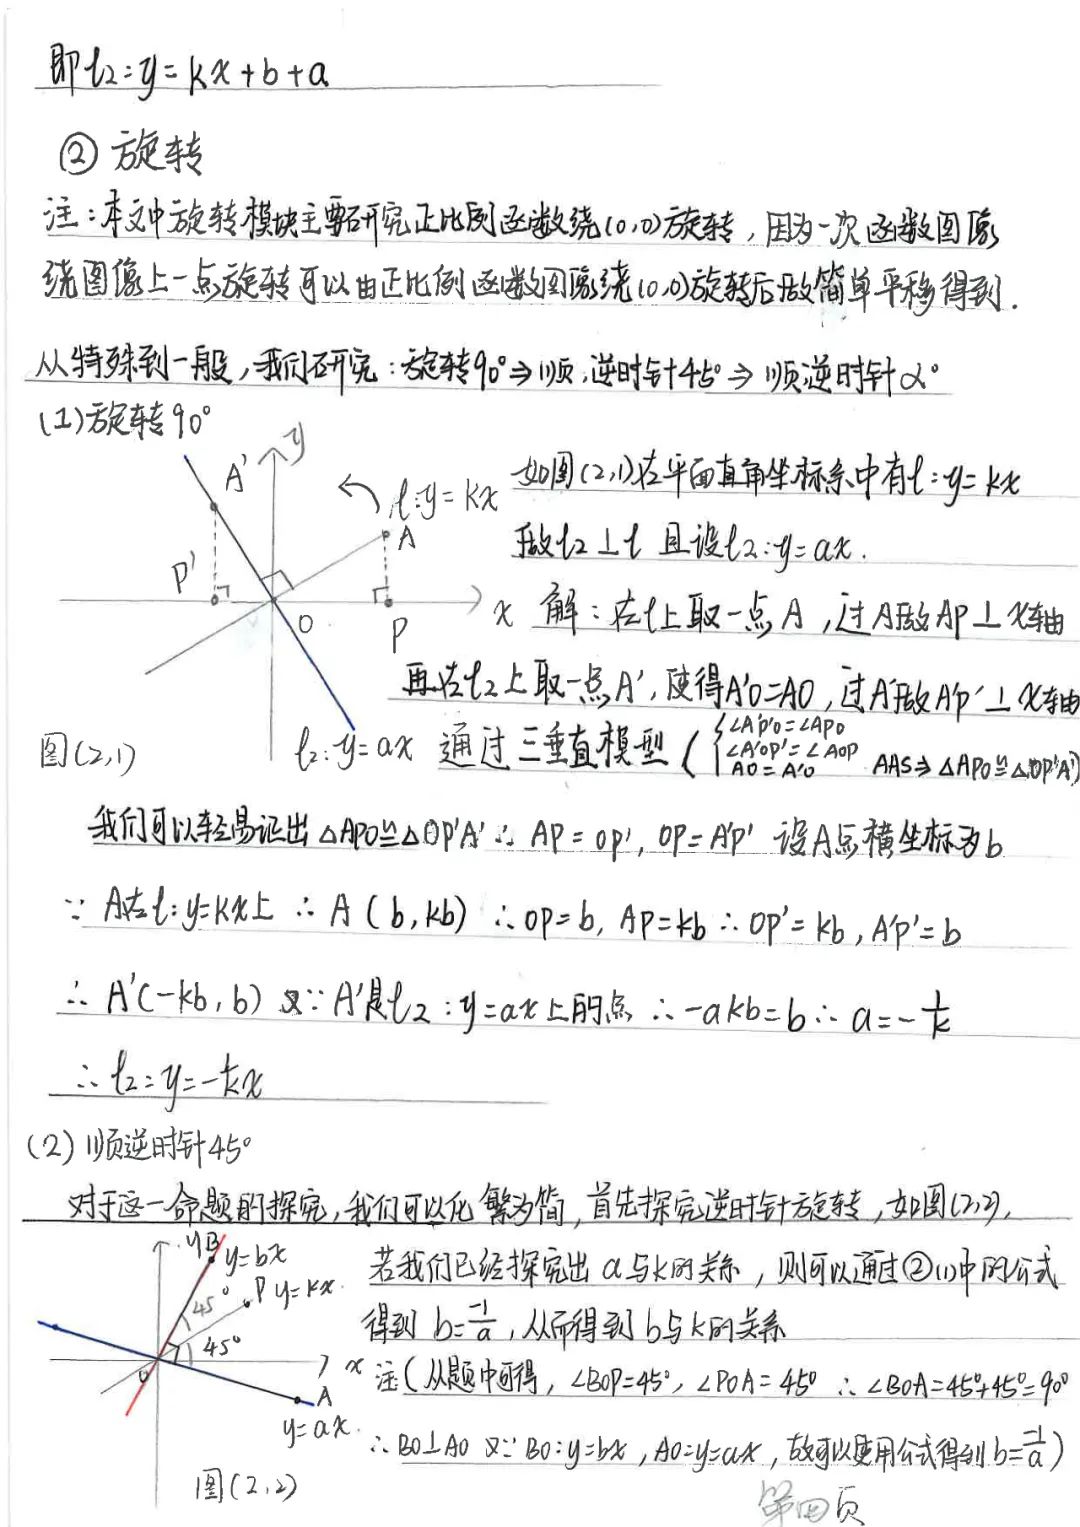 即l2:y=kx+b+a
② 旋转
注:本文中旋转模块主要研究正比例函数绕(0,0)旋转,因为一次函数图像
绕图像上一点旋转可以由正比例函数图像绕(0,0)旋转后做简单平移得到.
从特殊到一般,我们研究:旋转90°⇒顺,逆时针45°⇒顺逆时针α°
(1)旋转90°
y
A'
l:y=kx
A
P'
x
O
P
l2:y=ax
图(2,1)
如图(2,1)在平面直角坐标系中有l:y=kx
做l2⊥l 且设l2:y=ax.
解:在l上取一点A,过A做AP⊥x轴
再在l2上取一点A',使得A'O=AO,过A'做A'P'⊥x轴
通过三垂直模型({∠A'P'O=∠APO
∠A'OP'=∠AOP
AO=A'O AAS⇒△APO≌△OP'A')
我们可以轻易证出△APO≌△OP'A'∴AP=OP',OP=A'P' 设A点横坐标为b
∵ A在l:y=kx上 ∴A(b,kb) ∴OP=b,AP=kb∴OP'=kb,A'P'=b
∴ A'(-kb,b) 又∵A'是l2:y=ax上的点 ∴-akb=b∴a=-1/k
∴ l2:y=-1/kx
(2)顺逆时针45°
对于这一命题的探究,我们可以化繁为简,首先探究逆时针旋转,如图(2,2),
y
B
y=bx
P
y=kx
45°
45°
x
O
A
y=ax
图(2,2)
若我们已经探究出a与k的关系,则可以通过②(1)中的公式
得到 b=-1/a,从而得到b与k的关系
注(从题中可得,∠BOP=45°,∠POA=45° ∴∠BOA=45°+45°=90°
∴BO⊥AO 又∵BO:y=bx,AO=y=ax,故可以使用公式得到b=-1/a)
第四页